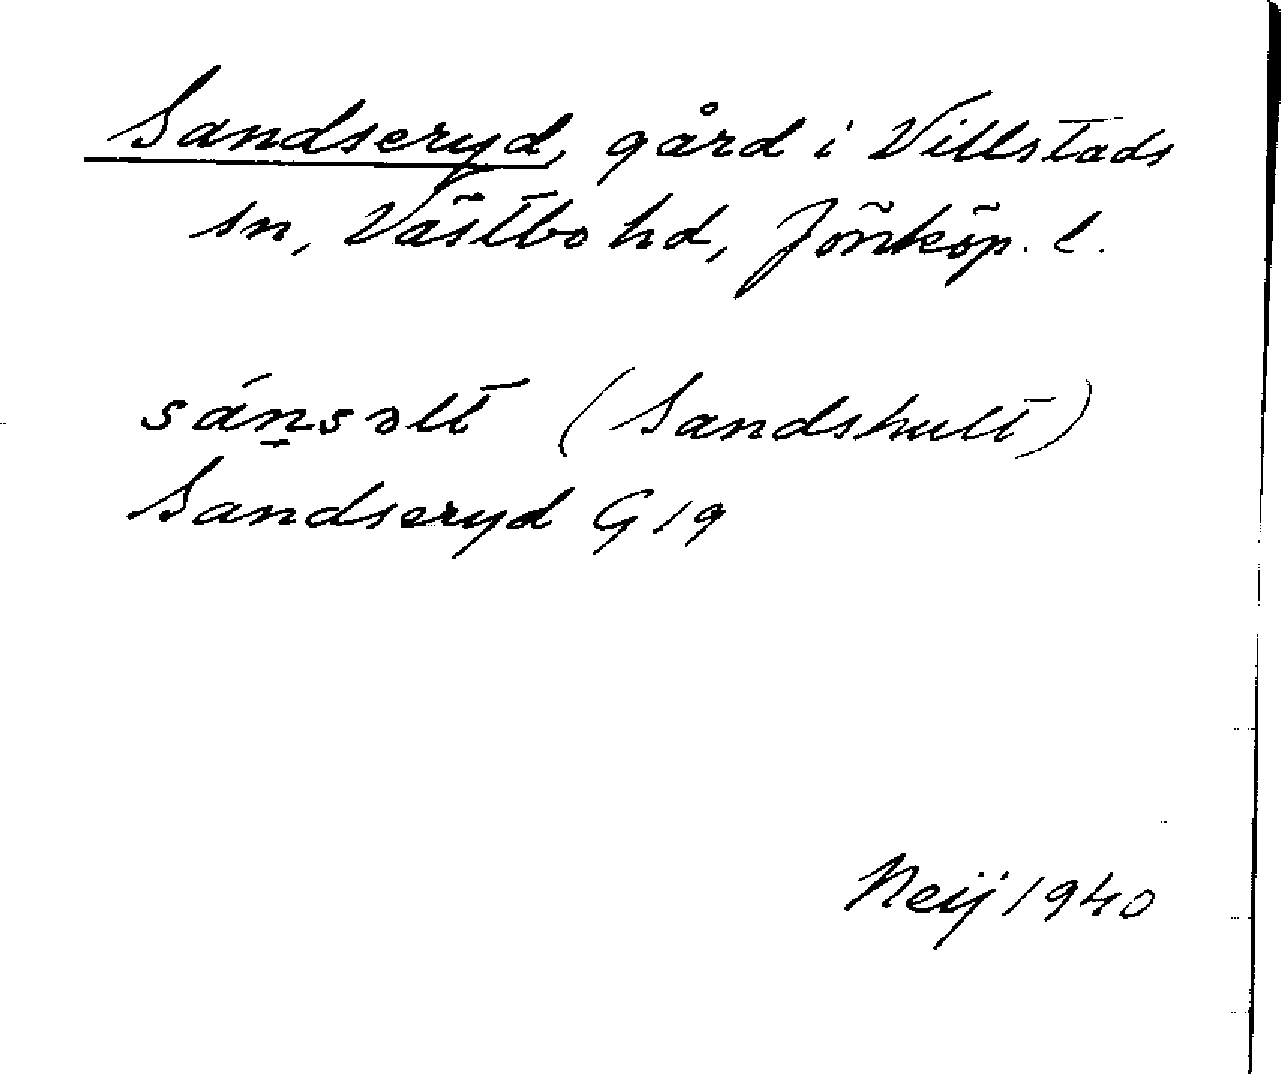 Sandseryd, gård i Villstads
sn, Västbo hd, Jönköp. l.
sán̠səlt (Sandshult)
Sandseryd G 19
Neij 1940